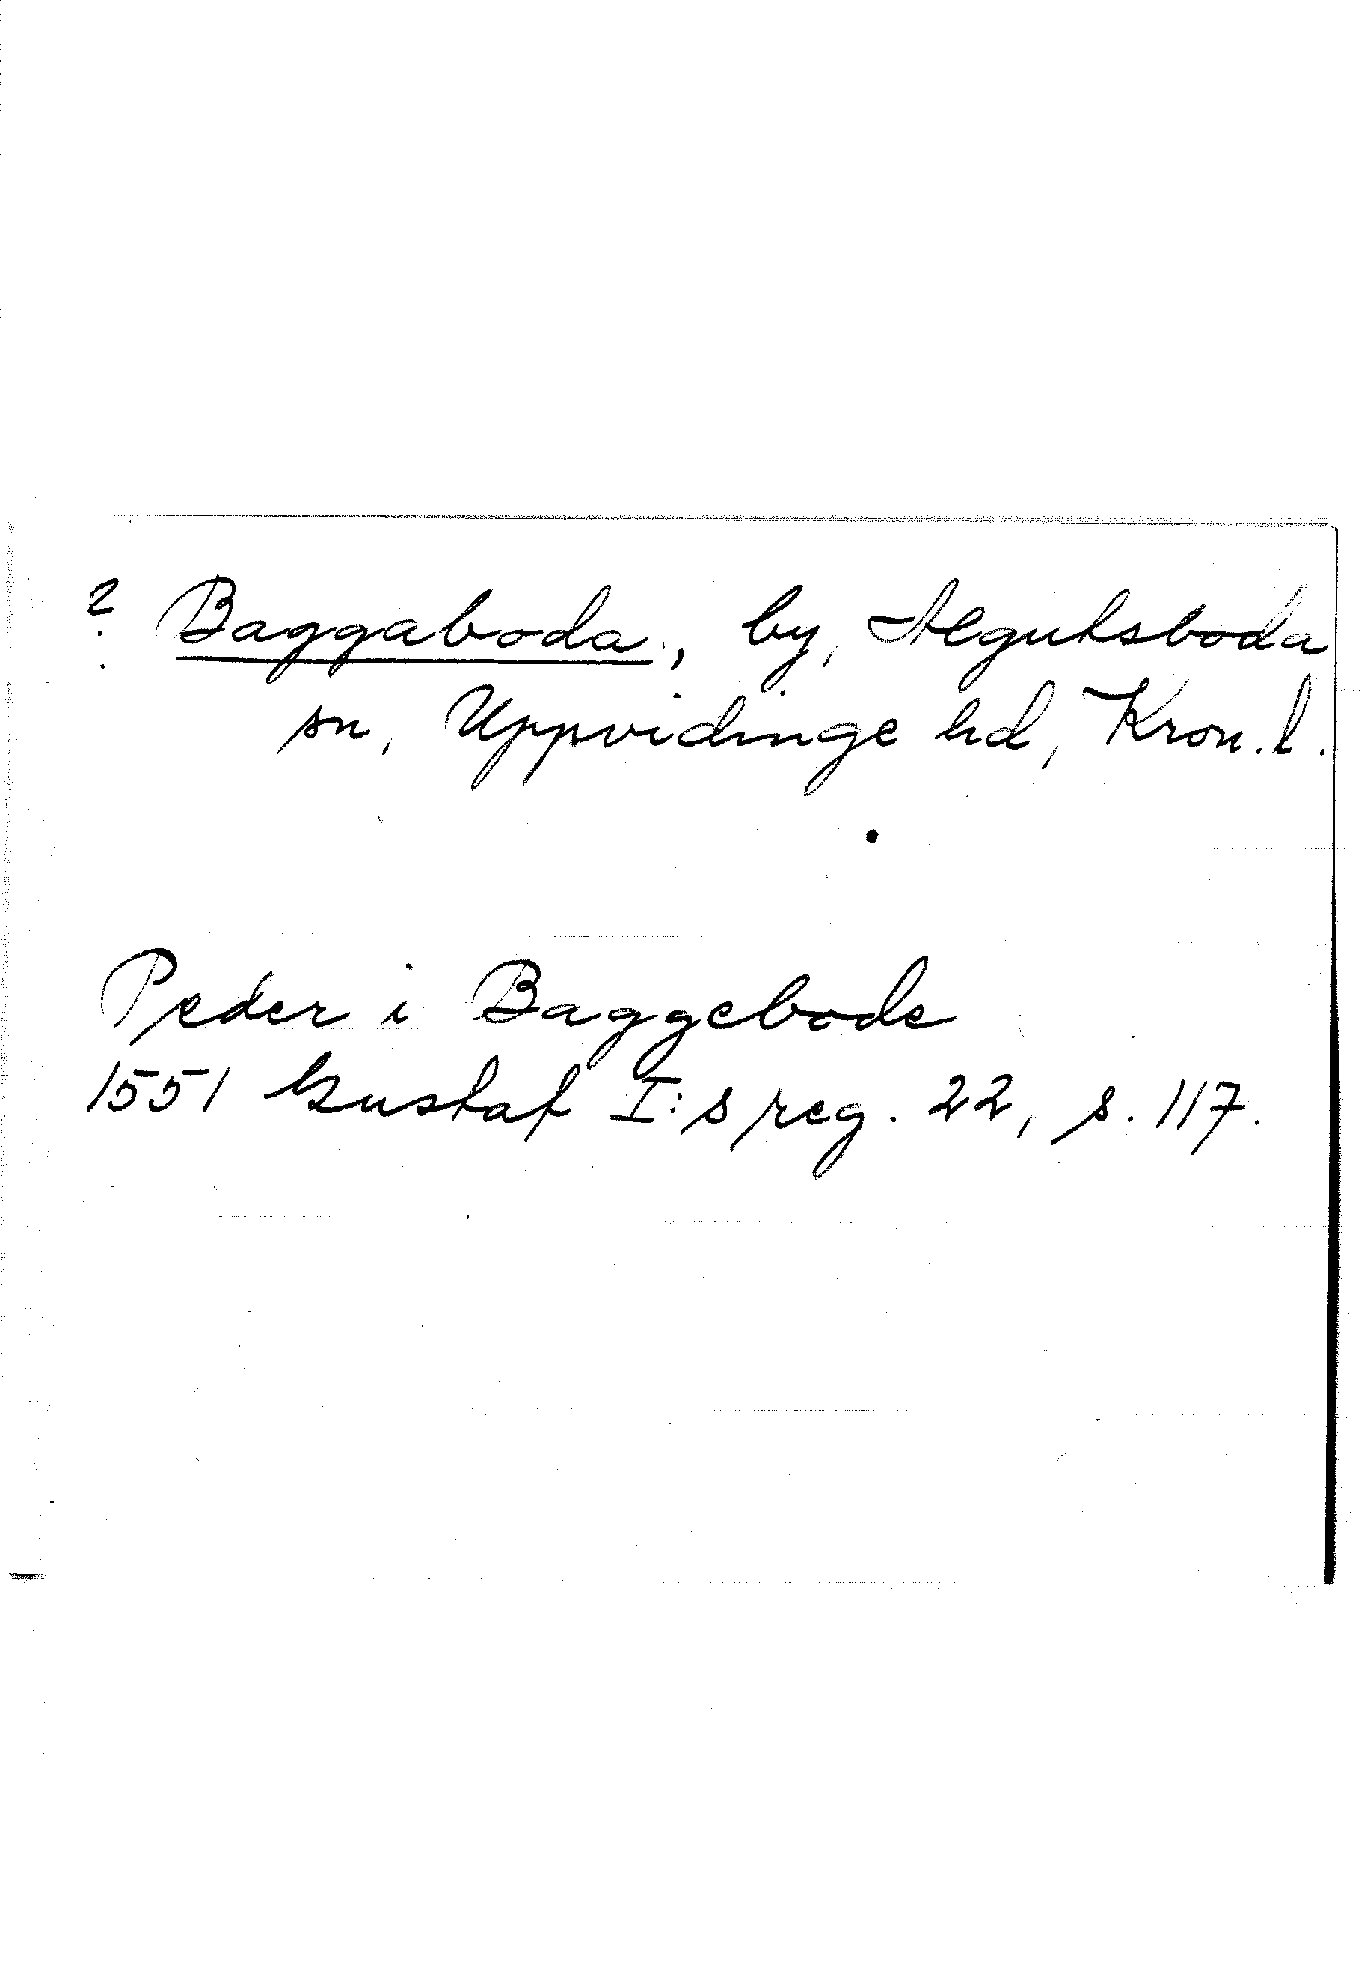 ? Baggaboda, by, Älgultsboda
sn, Uppvidinge hd, Kron. l.
Peder i Baggebode
1551 Gustaf I:s reg. 22, s. 117.